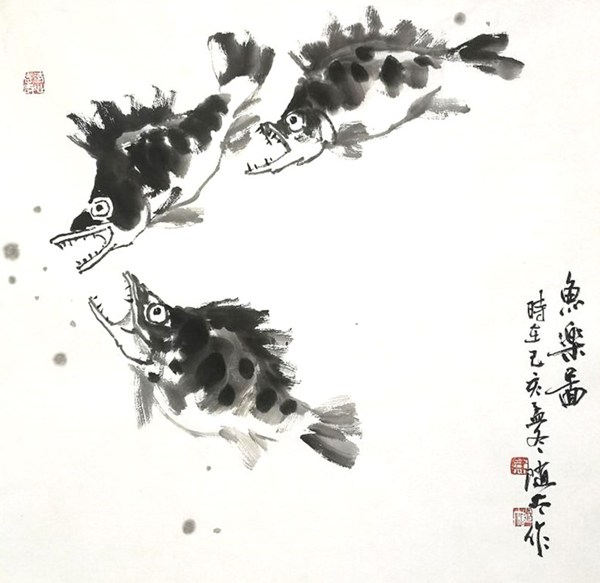 魚樂圖
時在己亥孟冬隨公作